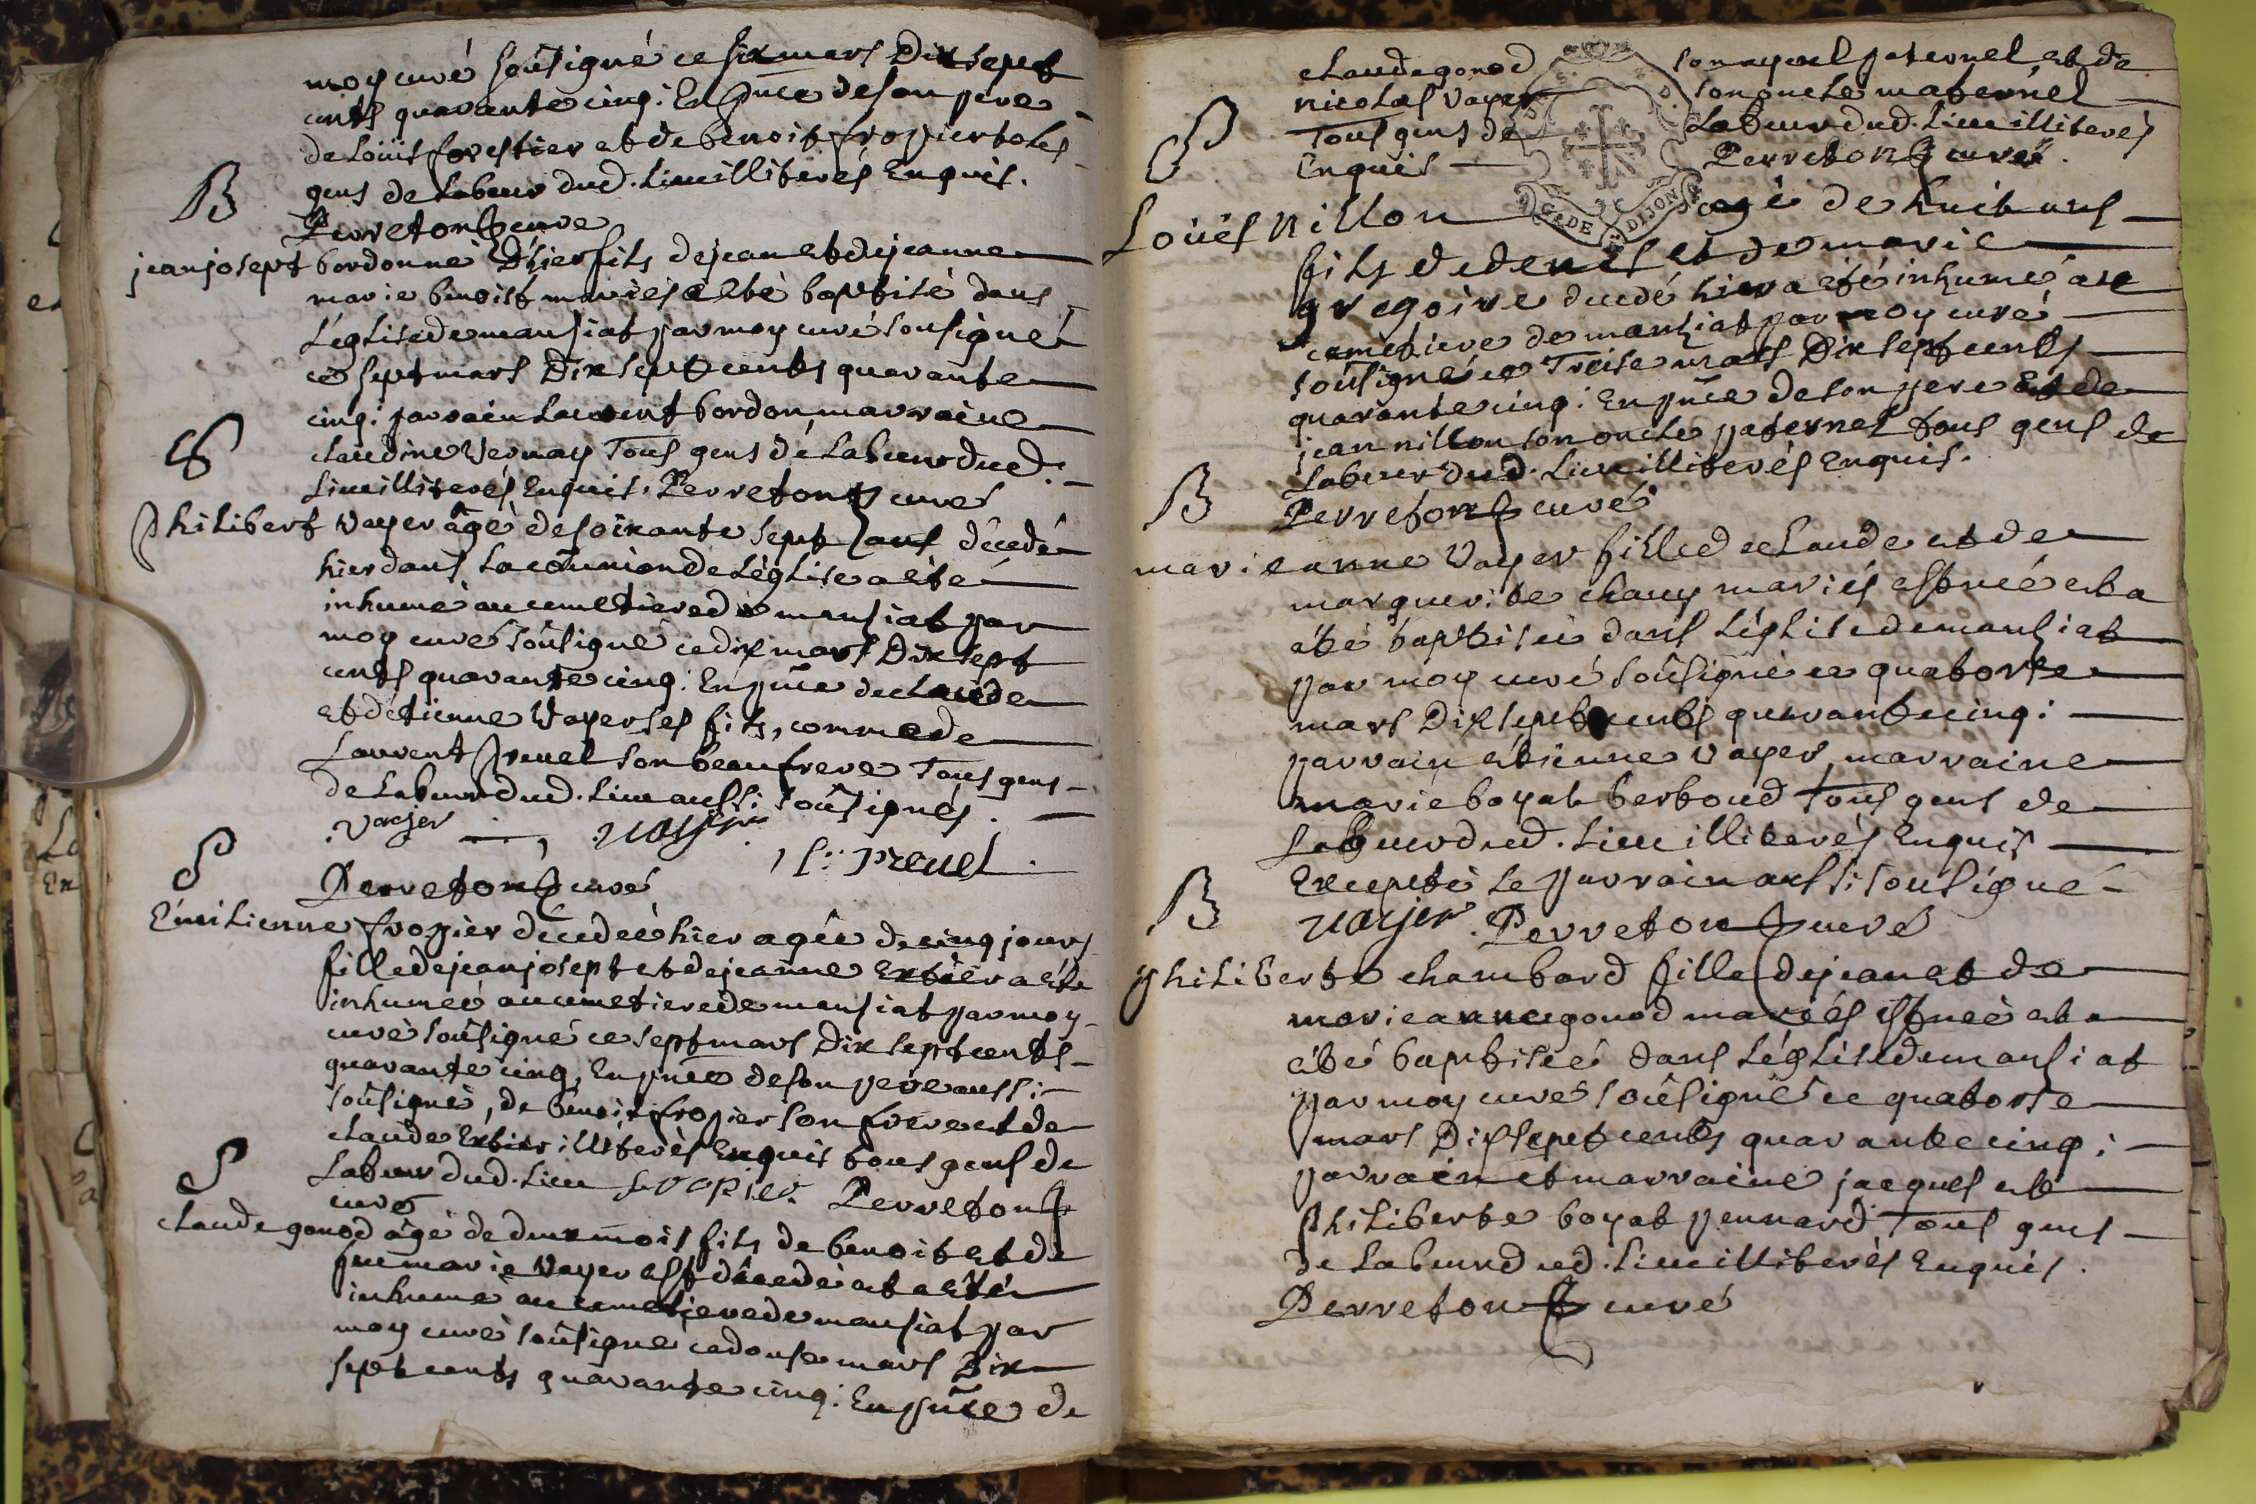 moy curé soûsigné ce six mars Dix sept
cents quarante cinq: En pnce de son pere
de Loüis forestier et de benoit fropier to les
gens de Labeur dud. Lieu illiterés Enquis.
B
Perreton curé
jean josept bordonne D'hier fils de jean et de jeanne
marie benoist mariés a eté baptisé dans
L'église de mansiat par moy curé sousigné
ce sept mars Dix sept cents quarante
cinq: parrain Laurent bordon marraine
S
claudine Vernay Tous gens de Labeur dud.
Lieu illiterés Enquis. Perreton curé
philibert Vayer âgé de soixante sept ans décedé
hier dans la coũnion de L'église a eté
inhumé au cemetiere de mansiat par
moy curé soûsigné ce dix mars Dix sept
cents quarante cinq: En pnce de claude
et d'etienne Vayer ses fils, comme de
Laurent preuel son beaufrere Tous gens
de Labeur dud. Lieu aussi soûsignés.
Vayer Vayer L: preuel
S
Perreton curé
Emilienne fropier decedée hier agée de cinq jours
fille de jean josept et de jeanne Extier a eté
inhumeé au cemetiere de mansiat par moy
curé soûsigné ce sept mars Dix sept cents
quarante cinq, En pnce de son pere aussi
soûsigné, de benoit fropier son frere et de
claude Extier illiterés Enquis tous gens de
S
Labeur dud. Lieu fropier Perreton
curé
claude gonod âgé de deux mois fils de benoit et de
fue marie Vayer est décedé et a eté
inhumé au cemetiere de mansiat par
moy curé soûsigné ce douse mars Dix
sept cents quarante cinq: En pnce de
claude gonod son ayeul paternel et de
nicolas Vayer son oncle maternel
S
Tous gens de Labeur dud. Lieu illiterés
Enquis Perreton curé.
G. DE DIJON
Loüis nillon agé de huit ans
fils de denis et de marie
gregoire decedé hier a eté inhumé au
cemetiere de mansiat par moy curé
soûsigné ce Treise mars Dix sept cents
quarante cinq: En pnce de son pere et de
jean nillon son oncle paternel tous gens de
Labeur dud. Lieu illiterés Enquis.
B
Perreton curé
marie anne Vayer fille de claude et de
marguerite chauy mariés est née et a
été baptisée dans L'église de mansiat
par moy curé soûsigné ce quatorse
mars Dix sept cents quarante cinq:
parrain etienne Vayer, marraine
marie boyat berboud Tous gens de
Labeur dud. Lieu illiterés Enquis
Excepté le parrain aussi soûsigné
B
Vayer. Perreton curé
philiberte chambard fille de jean et de
marie anne gonod mariés est née et a
été baptiseé dans L'église de mansiat
par moy curé soûsigné ce quatorse
mars Dix sept cents quarante cinq:
parrain et marraine jacques et
philiberte boyat pennard. Tous gens
de Labeur dud. Lieu illiterés Enquis.
Perreton curé